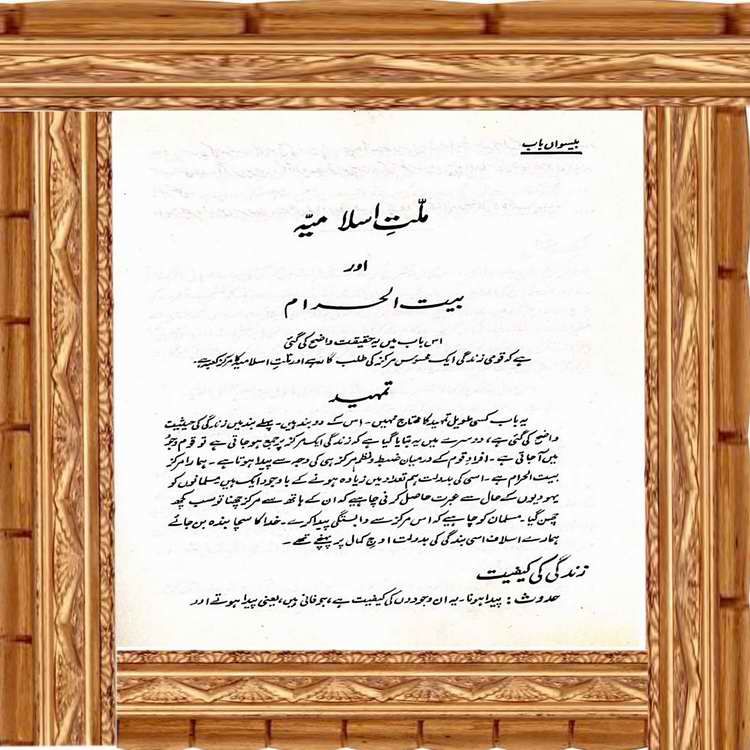 بیسواں باب
ملّتِ اسلامیّہ
اور
بیت الحرام
اس باب میں یہ حقیقت واضح کی گئی
ہے کہ قومی زندگی ایک محسوس مرکز کی طلب گار ہے اور ملتِ اسلامیہ کا مرکز کعبہ ہے۔
تمہید
یہ باب کسی طویل تمہید کا محتاج نہیں۔ اس کے دو بند ہیں۔ پہلے بند میں زندگی کی حیثیت
واضح کی گئی ہے، دوسرے میں یہ بتایا گیا ہے کہ زندگی ایک مرکز پر جمع ہو جاتی ہے تو قوم وجود
میں آجاتی ہے۔ افرادِ قوم کے درمیان ضبط و نظم مرکز ہی کی وجہ سے پیدا ہوتا ہے۔ ہمارا مرکز
بیت الحرام ہے۔ اسی کی بدولت ہم تعداد میں زیادہ ہونے کے باوجود ایک ہیں۔ مسلمانوں کو
یہودیوں کے حال سے عبرت حاصل کرنی چاہیے کہ ان کے ہاتھ سے مرکز چھنا تو سب کچھ
چھن گیا۔ مسلمان کو چاہیے کہ اس مرکز سے وابستگی پیدا کرے۔ خدا کا سچا بندہ بن جائے
ہمارے اسلاف اسی بندگی کی بدولت اوجِ کمال پر پہنچے تھے۔
زندگی کی کیفیت
حدوث: پیدا ہونا۔ یہ ان وجودوں کی کیفیت ہے، جو فانی ہیں، یعنی پیدا ہوتے اور